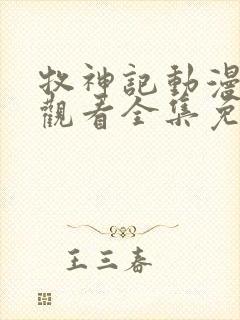 牧神記動漫
觀看全集免
王三春